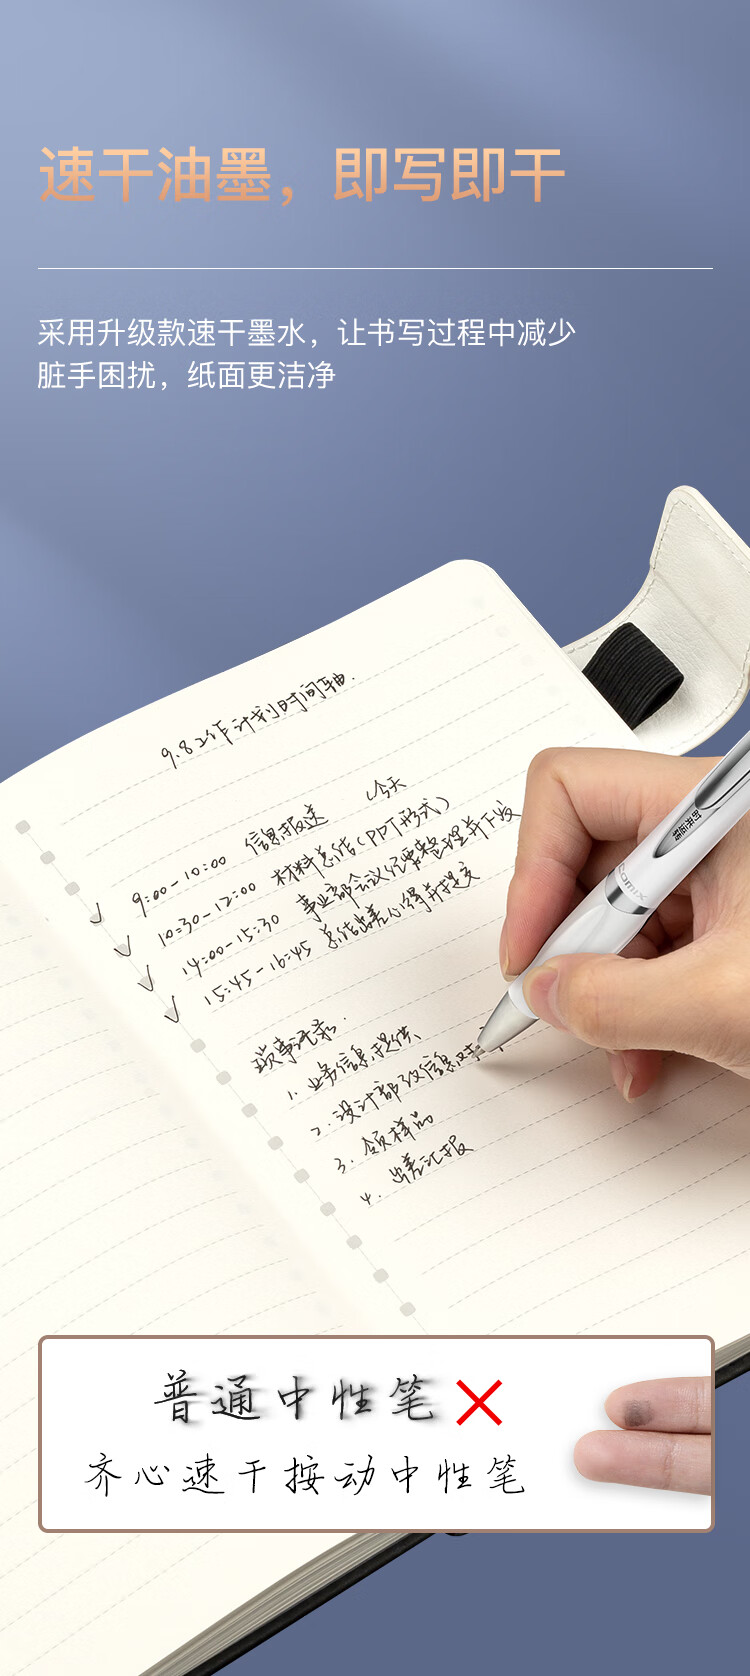 速干油墨，即写即干
采用升级款速干墨水，让书写过程中减少
脏手困扰，纸面更洁净
9.8工作计划时间轴.
今天
9:00-10:00 信息报送
10:30-12:00 材料总结(PPT形式)
14:00-15:30 事业部会议纪要整理并下发
15:45-16:45 总结出差心得并提交
琐事记录.
1. 业务信息提供
2. 设计部改信息
3. 领样品
4. 出差汇报
时来运转
Comix
普通中性笔
齐心速干按动中性笔